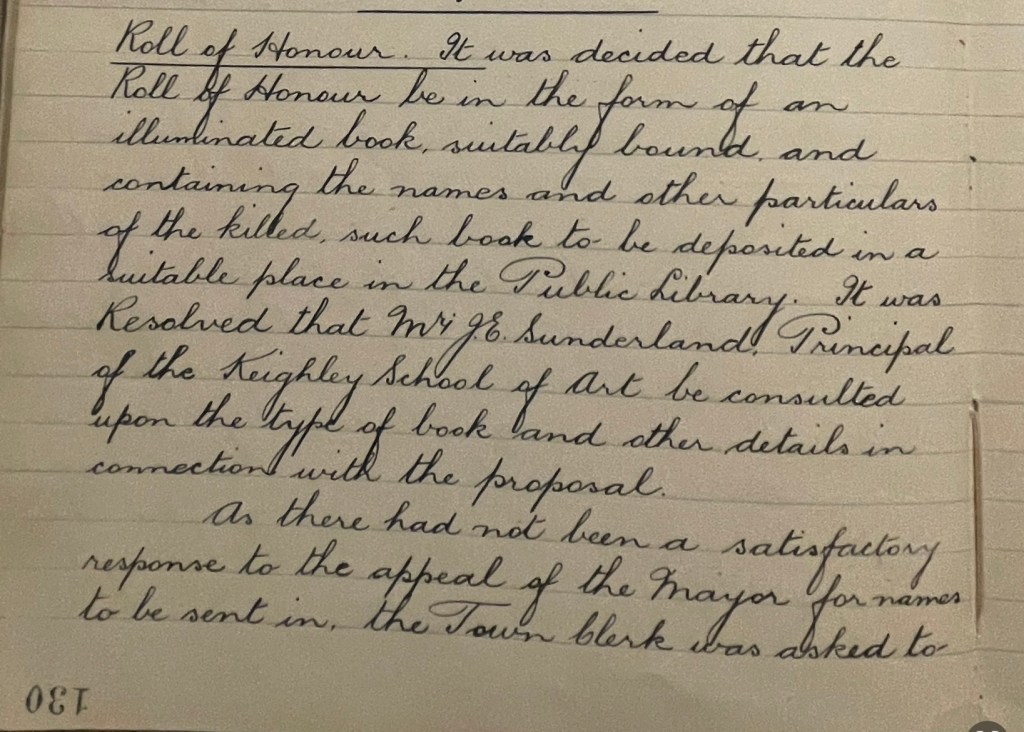 Roll of Honour. It was decided that the
Roll of Honour be in the form of an
illuminated book, suitably bound, and
containing the names and other particulars
of the killed, such book to be deposited in a
suitable place in the Public Library. It was
Resolved that Mr J.E. Sunderland, Principal
of the Keighley School of Art be consulted
upon the type of book and other details in
connection with the proposal.
As there had not been a satisfactory
response to the appeal of the Mayor for names
to be sent in, the Town Clerk was asked to
130